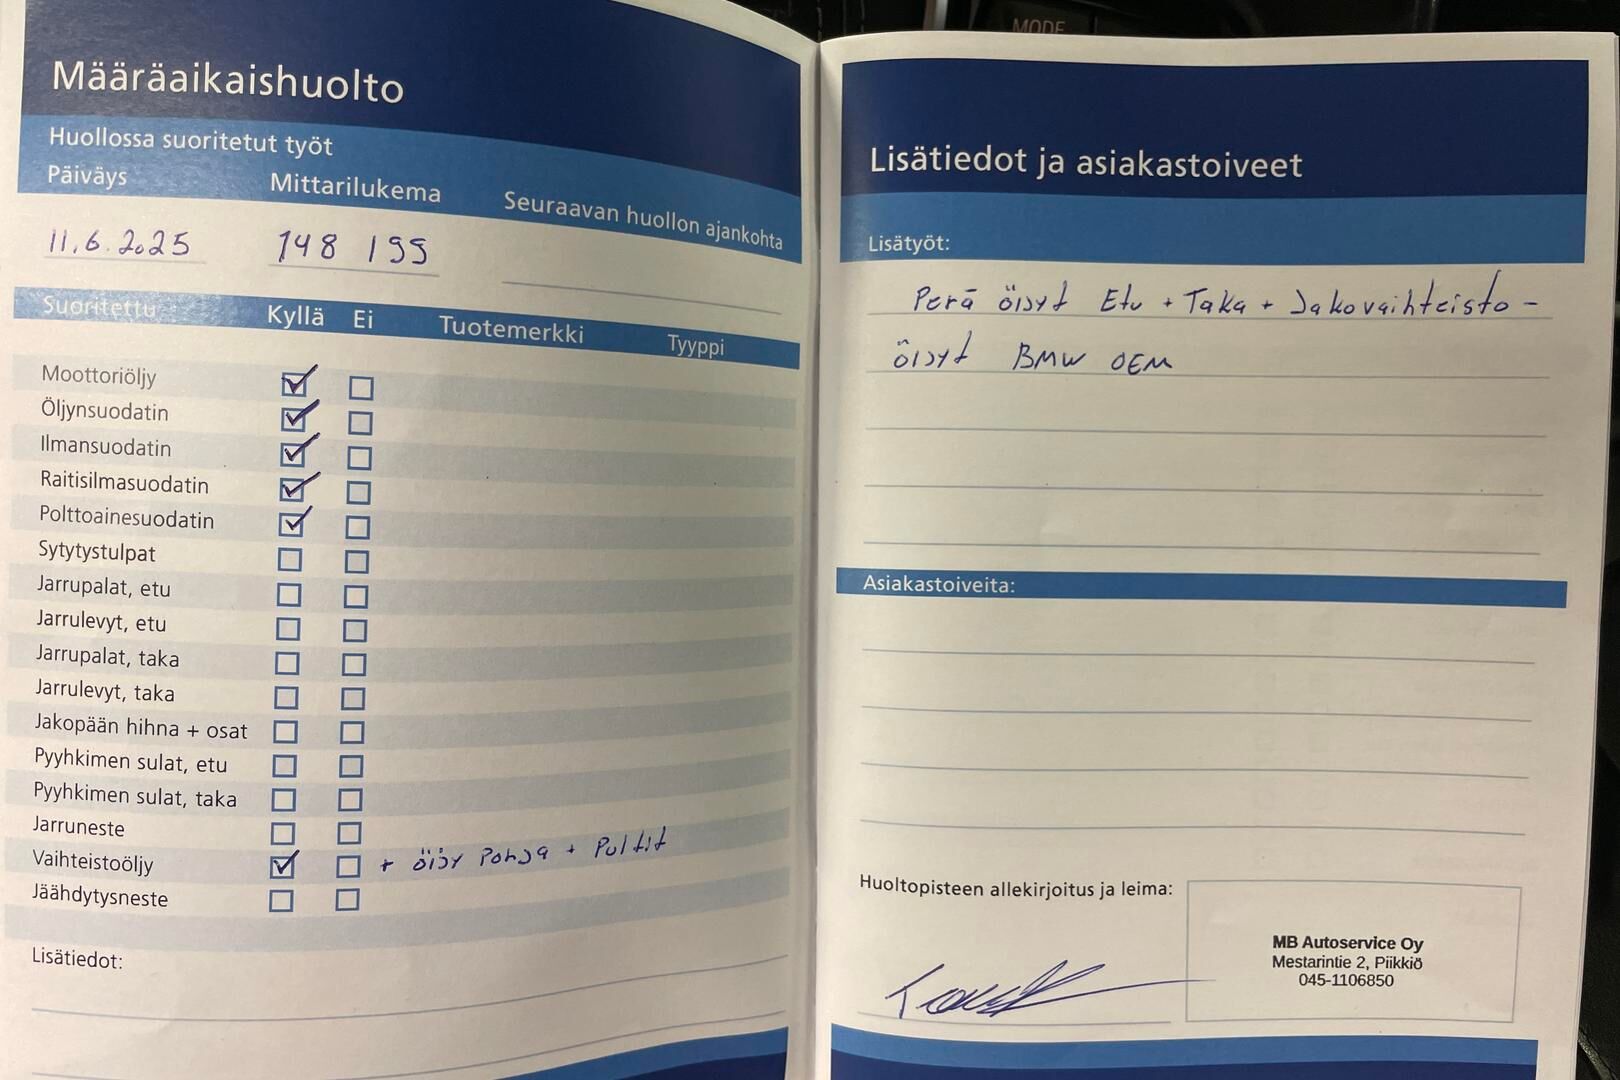 MODE
Määräaikaishuolto
Huollossa suoritetut työt
Päiväys Mittarilukema Seuraavan huollon ajankohta
11.6.2025 148 199
Suoritettu Kyllä Ei Tuotemerkki Tyyppi
Moottoriöljy
Öljynsuodatin
Ilmansuodatin
Raitisilmasuodatin
Polttoainesuodatin
Sytytystulpat
Jarrupalat, etu
Jarrulevyt, etu
Jarrupalat, taka
Jarrulevyt, taka
Jakopään hihna + osat
Pyyhkimen sulat, etu
Pyyhkimen sulat, taka
Jarruneste
Vaihteistoöljy + öljy Pohja + Pultit
Jäähdytysneste
Lisätiedot:
Lisätiedot ja asiakastoiveet
Lisätyöt:
Perä öljyt Etu + Taka + Jakovaihteisto -
öljyt BMW OEM
Asiakastoiveita:
Huoltopisteen allekirjoitus ja leima:
MB Autoservice Oy
Mestarintie 2, Piikkiö
045-1106850